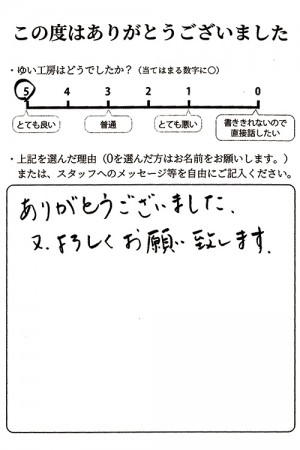 この度はありがとうございました
・ゆい工房はどうでしたか？（当てはまる数字に〇）
5 4 3 2 1 0
とても良い 普通 とても悪い 書ききれないので
直接話したい
・上記を選んだ理由（0を選んだ方はお名前をお願いします。）
または、スタッフへのメッセージ等を自由にご記入ください。
ありがとうございました、
又、よろしくお願い致します。